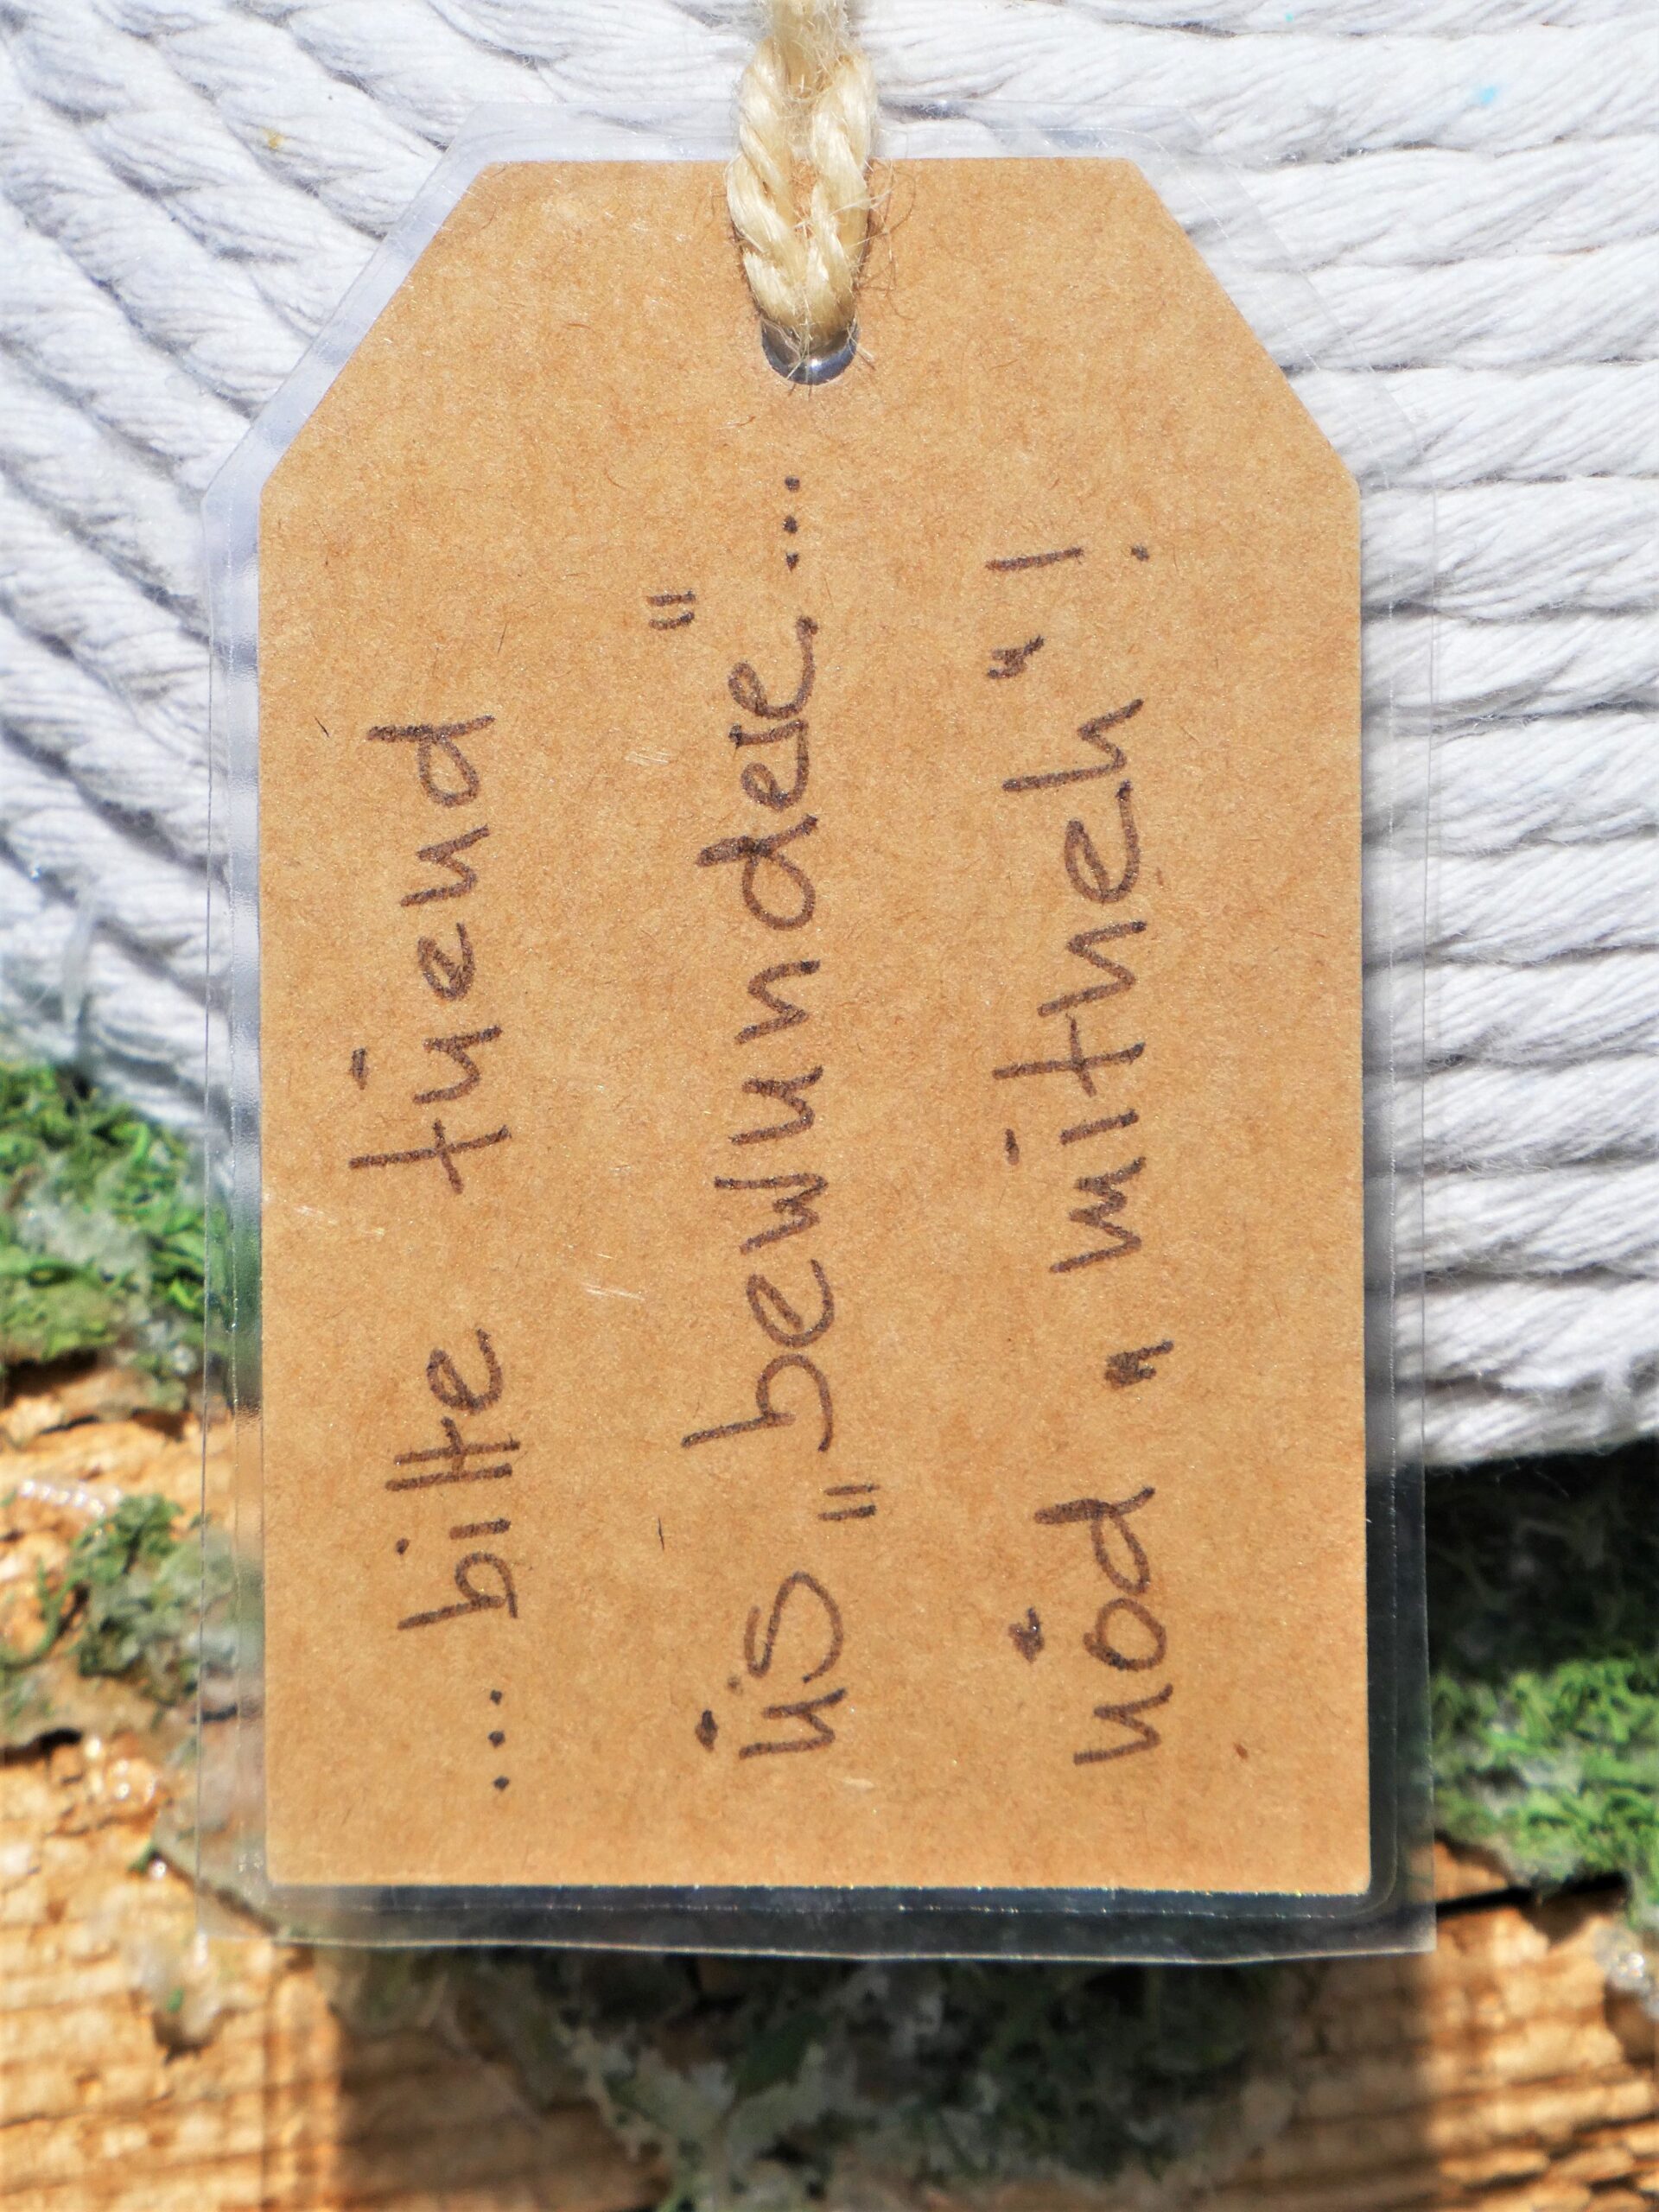 ... bitte tüend
üs "bewundere" ...
nöd "mitneh"!